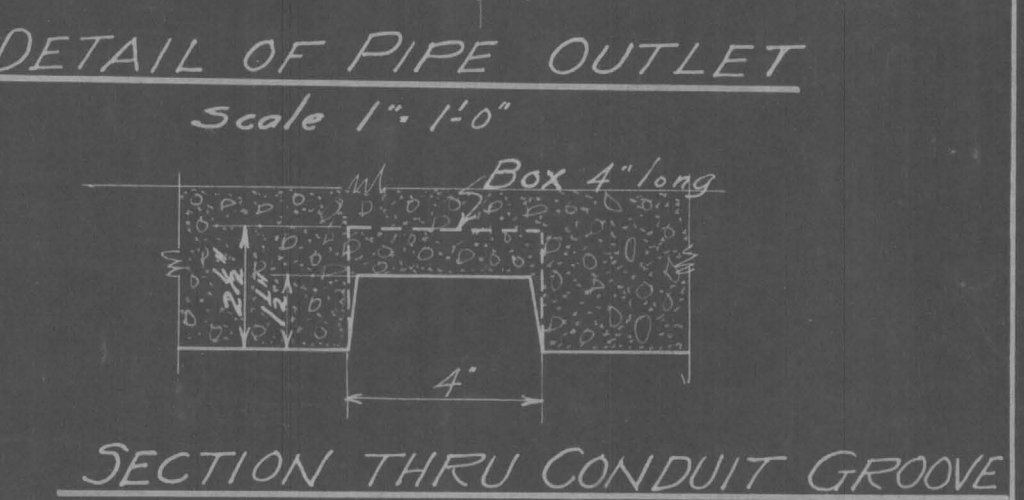 DETAIL OF PIPE OUTLET
Scale 1"= 1'-0"
Box 4" long
2½"
1½"
4"
SECTION THRU CONDUIT GROOVE